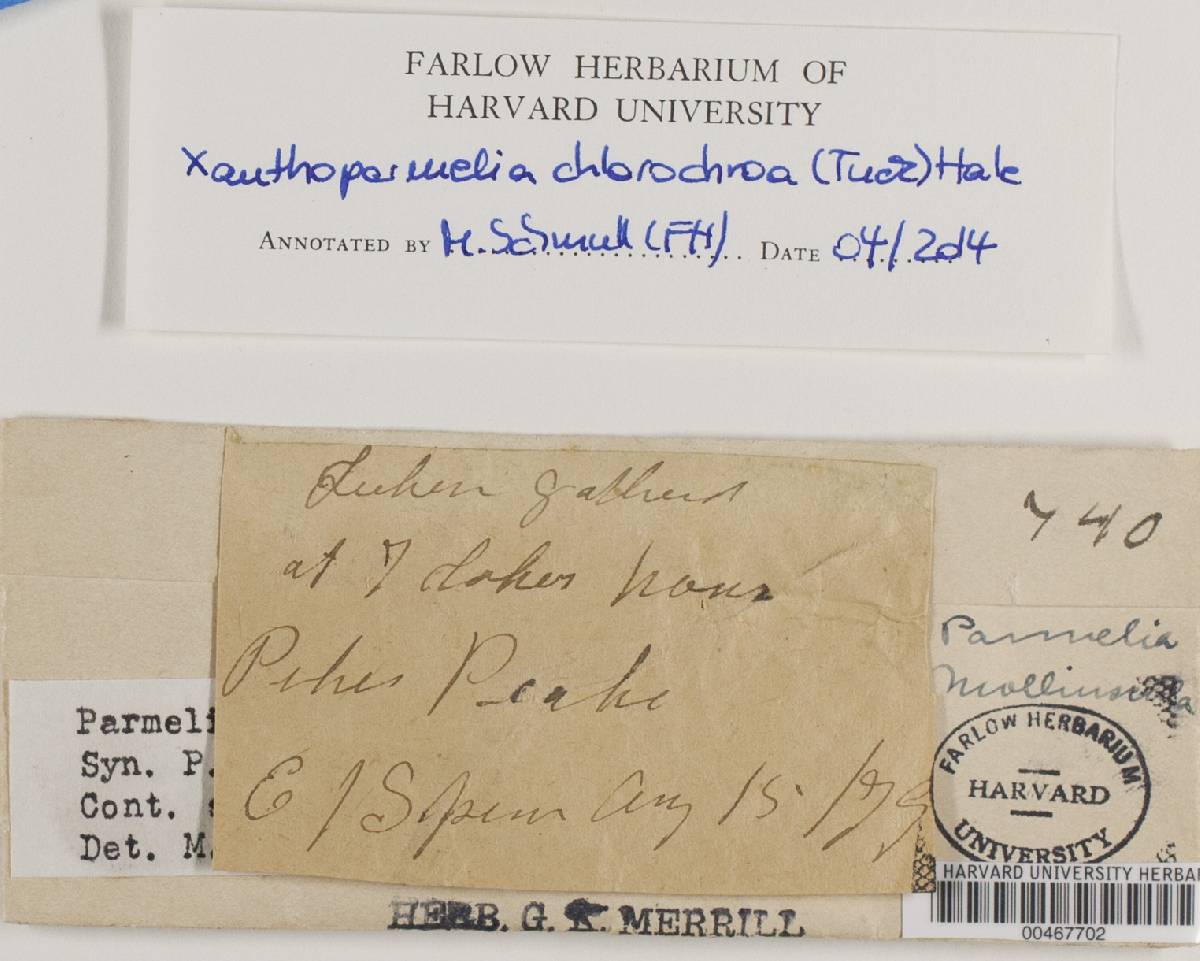 FARLOW HERBARIUM OF
HARVARD UNIVERSITY
Xanthoparmelia chlorochroa (Tuck) Hale
ANNOTATED BY M. Schmull (FH) DATE 04/2014
Lichen gatherd
at 7 Lakes
Pikes Peake
E Aug 15
740
Parmelia
Molliuscula
Parmeli
Syn. P.
Cont.
Det. M.
FARLOW HERBARIUM
HARVARD
UNIVERSITY
HERB. G. K. MERRILL
HARVARD UNIVERSITY HERBA
00467702